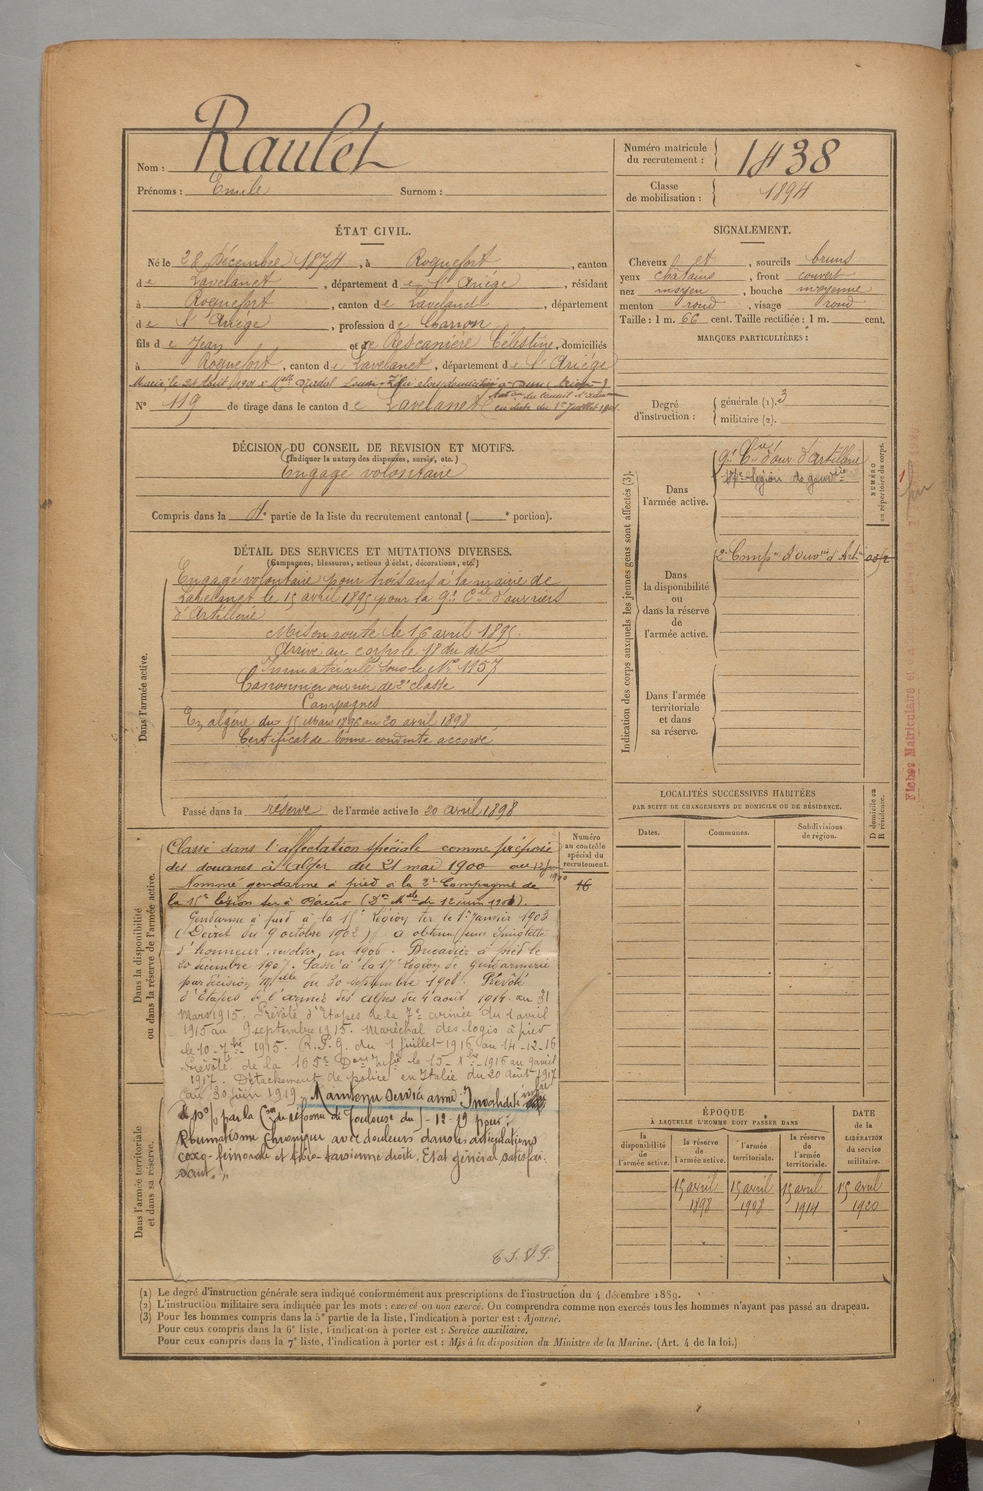 Nom : Raulet
Prénoms : Emile Surnom :
Numéro matricule du recrutement : 1438
Classe de mobilisation : 1894
ÉTAT CIVIL.
Né le 28 Décembre 1874, à Roquefort, canton
de Lavelanet, département de l'Ariége, résidant
à Roquefort, canton de Lavelanet, département
de l'Ariége, profession de Charron
fils de Jean et de Rescanière Célestine, domiciliés
à Roquefort, canton de Lavelanet, département de l'Ariége
Marié le 24 1901 à Melle
N° 119 de tirage dans le canton de Lavelanet
SIGNALEMENT.
Cheveux et, sourcils bruns
yeux chatains, front couvert
nez moyen, bouche moyenne
menton rond, visage rond
Taille : 1 m. 66 cent. Taille rectifiée : 1 m. cent.
MARQUES PARTICULIÈRES :
Degré d'instruction : générale (1). 3
militaire (2).
DÉCISION DU CONSEIL DE REVISION ET MOTIFS.
(Indiquer la nature des dispenses, sursis, etc.)
Engagé volontaire
Compris dans la 4e partie de la liste du recrutement cantonal ( e portion).
DÉTAIL DES SERVICES ET MUTATIONS DIVERSES.
(Campagnes, blessures, actions d'éclat, décorations, etc.)
Dans l'armée active.
Engagé volontaire pour trois ans à la mairie de
Lavelanet le 15 avril 1895 pour la 9e Cie d'ouvriers
d'Artillerie
Mis en route le 16 avril 1895.
Arrivé au corps le 18 du dit
Immatriculé sous le No 1157
Canonnier ouvrier de 2e classe
Campagnes
En algérie du 15 Mars 1896 au 20 avril 1898
Certificat de bonne conduite accordé
Passé dans la réserve de l'armée active le 20 avril 1898
Dans la disponibilité ou dans la réserve de l'armée active.
Classé dans l'affectation spéciale comme préposé
des douanes à Alger du 21 mai 1900 au 12 juin 1900
Nommé gendarme à pied à la 2e Compagnie de
la 15e légion ter à (Don Mlle du 12 juin 1900).
Gendarme à pied à la 15e légion ter le 1er Janvier 1903
(Décret du 9 octobre 1902) a obtenu une épinglette
d'honneur, revolver, en 1906. Brigadier à pied le
20 décembre 1907. Passé à la 17e légion de Gendarmerie
par décision Mlle du 30 septembre 1908. Prévôté
d'Etapes de l'armée des Alpes du 4 août 1914 au 31
mars 1915. Prévôté d'Etapes de la 7e armée du 1 avril
1915 au 9 septembre 1915. Maréchal des logis à pied
le 10-7bre 1915. (R.F.G. du 1 juillet 1916 au 14-12-16
Prévôté de la 165e Don Infie le 15-Xbre 1916 au 9 avril
1917. Détachement de police en Italie du 20 août 1917
au 30 juin 1919. Maintenu service armé. Invalidité infre
à 10% par la Con de réforme de Toulouse du 1-12-19 pour :
Rhumatisme chronique avec douleurs dans les articulations
coxo-fémorale et tibio-tarsienne droite. Etat général satisfai-
sant. »
T. S. V. P.
Dans l'armée territoriale et dans sa réserve.
Numéro au contrôle spécial du recrutement.
16
Indication des corps auxquels les jeunes gens sont affectés (3).
NUMÉRO au répertoire du corps.
Dans l'armée active.
9e Cie d'ouv. d'Artillerie
17e légion de gendrie
Dans la disponibilité ou dans la réserve de l'armée active.
2e Compie d'ouvers d'Artie
Dans l'armée territoriale et dans sa réserve.
LOCALITÉS SUCCESSIVES HABITÉES
PAR SUITE DE CHANGEMENTS DE DOMICILE OU DE RÉSIDENCE.
Dates. Communes. Subdivisions de région. D domicile ou R résidence.
ÉPOQUE
À LAQUELLE L'HOMME DOIT PASSER DANS
la disponibilité de l'armée active. la réserve de l'armée active. l'armée territoriale. la réserve de l'armée territoriale.
DATE DE LA LIBÉRATION du service militaire.
15 avril 1898 15 avril 1908 15 avril 1914 15 avril 1920
Fiches Matriculaire et
(1) Le degré d'instruction générale sera indiqué conformément aux prescriptions de l'instruction du 4 décembre 1889.
(2) L'instruction militaire sera indiquée par les mots : exercé ou non exercé. On comprendra comme non exercés tous les hommes n'ayant pas passé au drapeau.
(3) Pour les hommes compris dans la 5e partie de la liste, l'indication à porter est : Ajourné.
Pour ceux compris dans la 6e liste, l'indication à porter est : Service auxiliaire.
Pour ceux compris dans la 7e liste, l'indication à porter est : Mis à la disposition du Ministre de la Marine. (Art. 4 de la loi.)